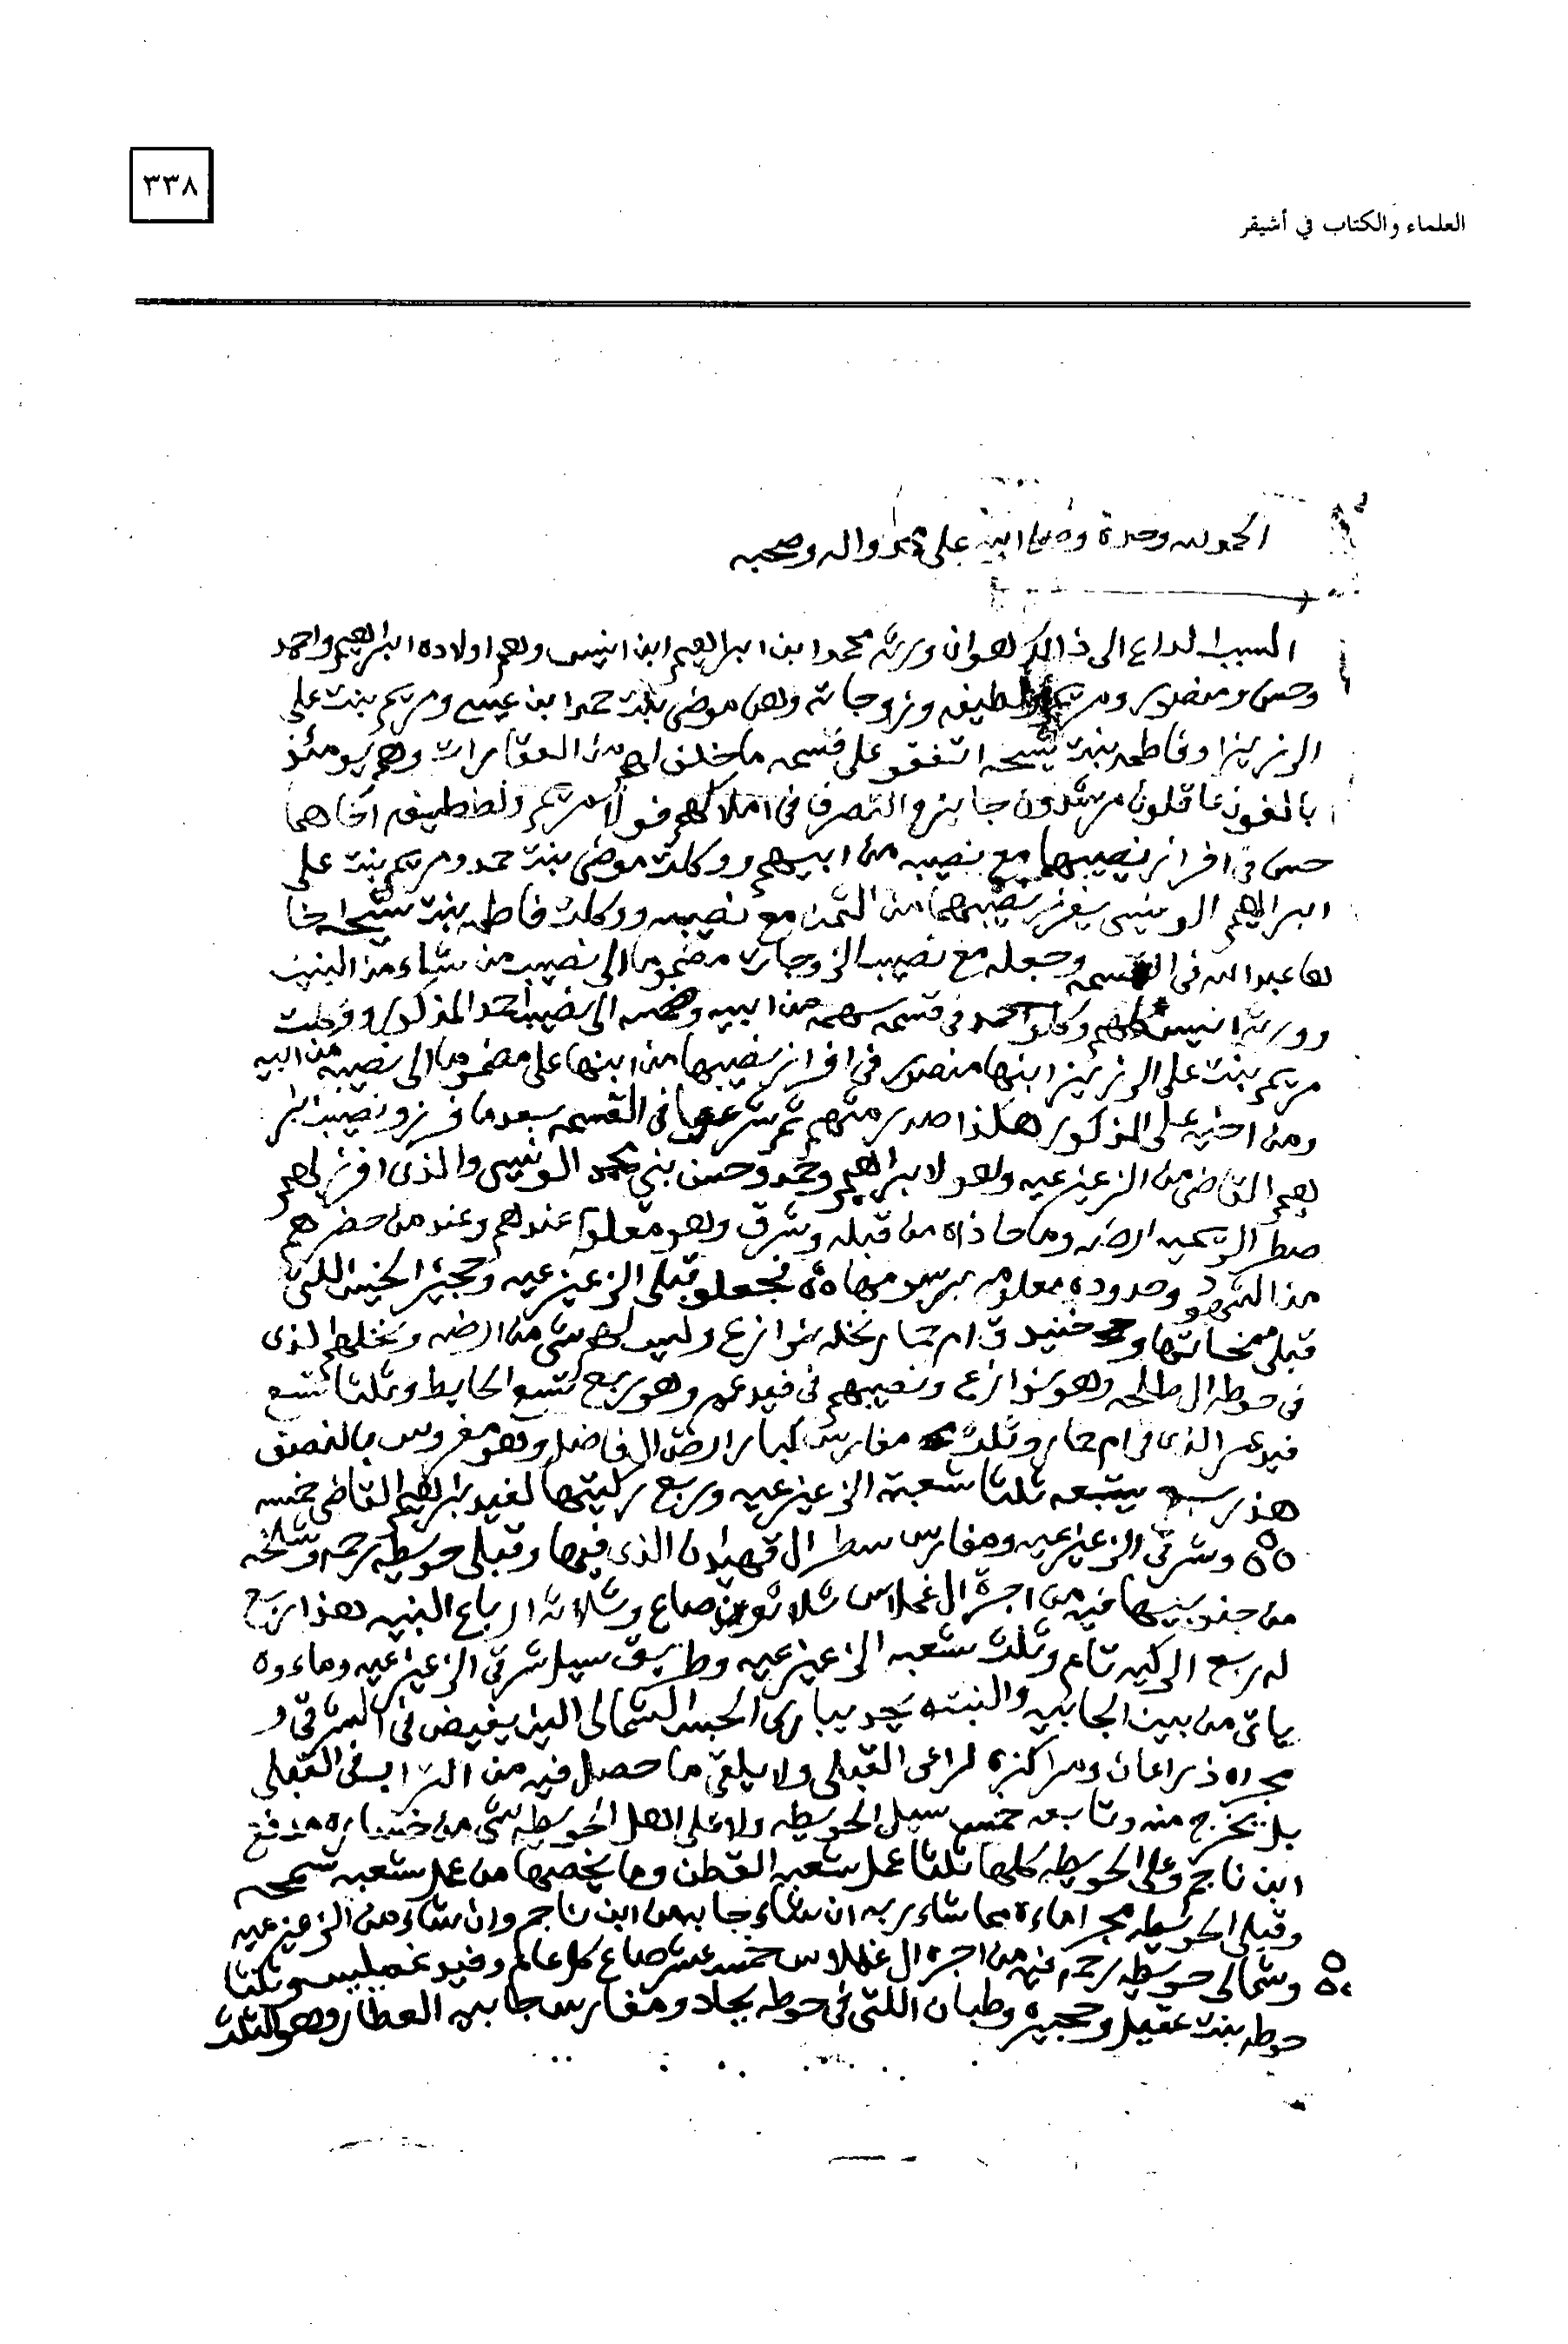 ٣٣٨
العلماء والكتاب في أشيقر
الحمد لله وحده وصلى الله على محمد واله وصحبه
السبب الداع الى ذالك هوان ورثه محمد ابن ابراهيم ابن انيس وهم اولاده ابراهيم واحمد
وحسن ومنصور ومريم ولطيفه وزوجاته وهن موضى بنت حمد ابن عيسى ومريم بنت على
الرزيزا وفاطمه بنت شيحه اتفقو على قسمه ماخلف لهم من العقارات وهم يومئذ
بالغون عاقلون مرشدون جايزو التصرف فى املاكهم فولا مريم ولططيفه اخاهما
حسن فى افراز نصيبهما مع نصيبه من ابيهم ووكلت موضى بنت حمد ومريم بنت على
ابراهيم الونيسى يفرز نصيبهما من الثمن مع نصيبه ووكلت فاطمه بنت شيحه اخا
ها عبدالله فى القسمه وجعله مع نصيب الزوجات مضموما الى نصيب من شاء من البنين
وورثة انيس كلهم وكلو احمد فى قسمه سهمه من ابيه وضمه الى نصيب احمد المذكور ووكلت
مريم بنت على الرزيز ابنها منصور فى افراز نصيبها من ابنها على مضموما الى نصيبه من ابيه
ومن اخيه على المذكور هكذا صدر منهم ثم شرعوا فى القسمه بعدما فرزو نصيب ابر
هيم القاضى من الزعيزعيه وهو لابراهيم وحمد وحسن بنى محمد الونيسى والذى افرز لهم
صطر الوسميه ارضه وما حاذاه من قبله وشرق وهو معلوم عندهم وعند من حضرهم
من الشهود وحدوده معلومه برسومها ٥٥ فجعلو قبلى الزعيزعيه وحجيز الخيس اللتى
قبلى منحاتها وخنيد فى ام حمار نخله نوازع وليس لهم شى من ارضه ونخلهم الذى
فى حوطه ال طلحه وهو نوازع ونصيبهم فى فيد عمر وهو ربع تسع الحايط وثلثا تسع
فيد عمر الذى فى ام حمار وثلث مغارسة كبار ارض ال فاضل وهو مغروس بالنصف
هذ يتبعه ثلثا شعبة الزعيزعيه وربع ركيتها لفيد ابراهيم القاضى خمسه
٥٥ وشرقى الزعيزعيه ومغارس سطر ال قهيدان الذى فيها وقبلى حويطه رحمه وشالخه
من جنوبيها فيه من اجرة ال غملاس ثلاثون صاع وثلاثة ارباع البنيه هذا ربع
له ربع الركيه تام وثلث شعبه الزعيزعيه وطريق سيل شرقى الزعيزعيه وماءوه
ياتى من بين الجابيه والنبته يجد يبارى الحبس الشمالى الين يفيض فى الشرقى و
مجراه ذراعان ومراكزه لراعى القبلى ولا يلقى ما حصل فيه من التراب فى القبلى
بل يخرج منه وتابعه خمس سيل الحويطه ولا على اهل الحويطه شى من خساره مدفع
ابن ناجم وعلى الحويطه كلها ثلثا عمل شعبه القطن وما يخصها من عمل شعبه شمحه
وقبلى الحويطه مجرا ماءه مما شاء ربه ان شاء جابه من ابن ناجم وان شاء من الزعيزعيه
٥٠ وشمالى حويطه رحمه فيه من اجره ال غملاس خمسه عشر صاع كل عام وفيد غمليس وثلثا
حوطه بنت عقيل وحجيزه وطبان اللتى فى حوطه بجاد ومغارس جابيه العطار وهو الثلث